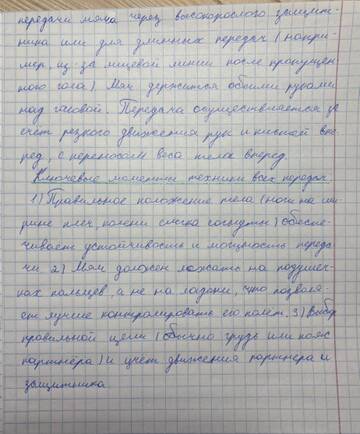 передачи мяча через высокорослого защит-
ника или для длинных передач (напри-
мер, из-за лицевой линии после пропущен-
ного гола.) Мяч держится обеими руками
над головой. Передача осуществляется за
счёт резкого движения рук и кистей впе-
ред, с переносом веса тела вперед.
Ключевые моменты техники всех передач
1) Правильное положение тела (ноги на ши-
рине плеч, колени слегка согнуты) обеспе-
чивает устойчивость и мощность переда
чи 2) Мяч должен лежать на подушеч-
ках пальцев, а не на ладони, что позволя-
ет лучше контролировать его полет. 3) Выбор
правильной цели (обычно грудь или пояс
партнёра) и учет движения партнера и
защитника